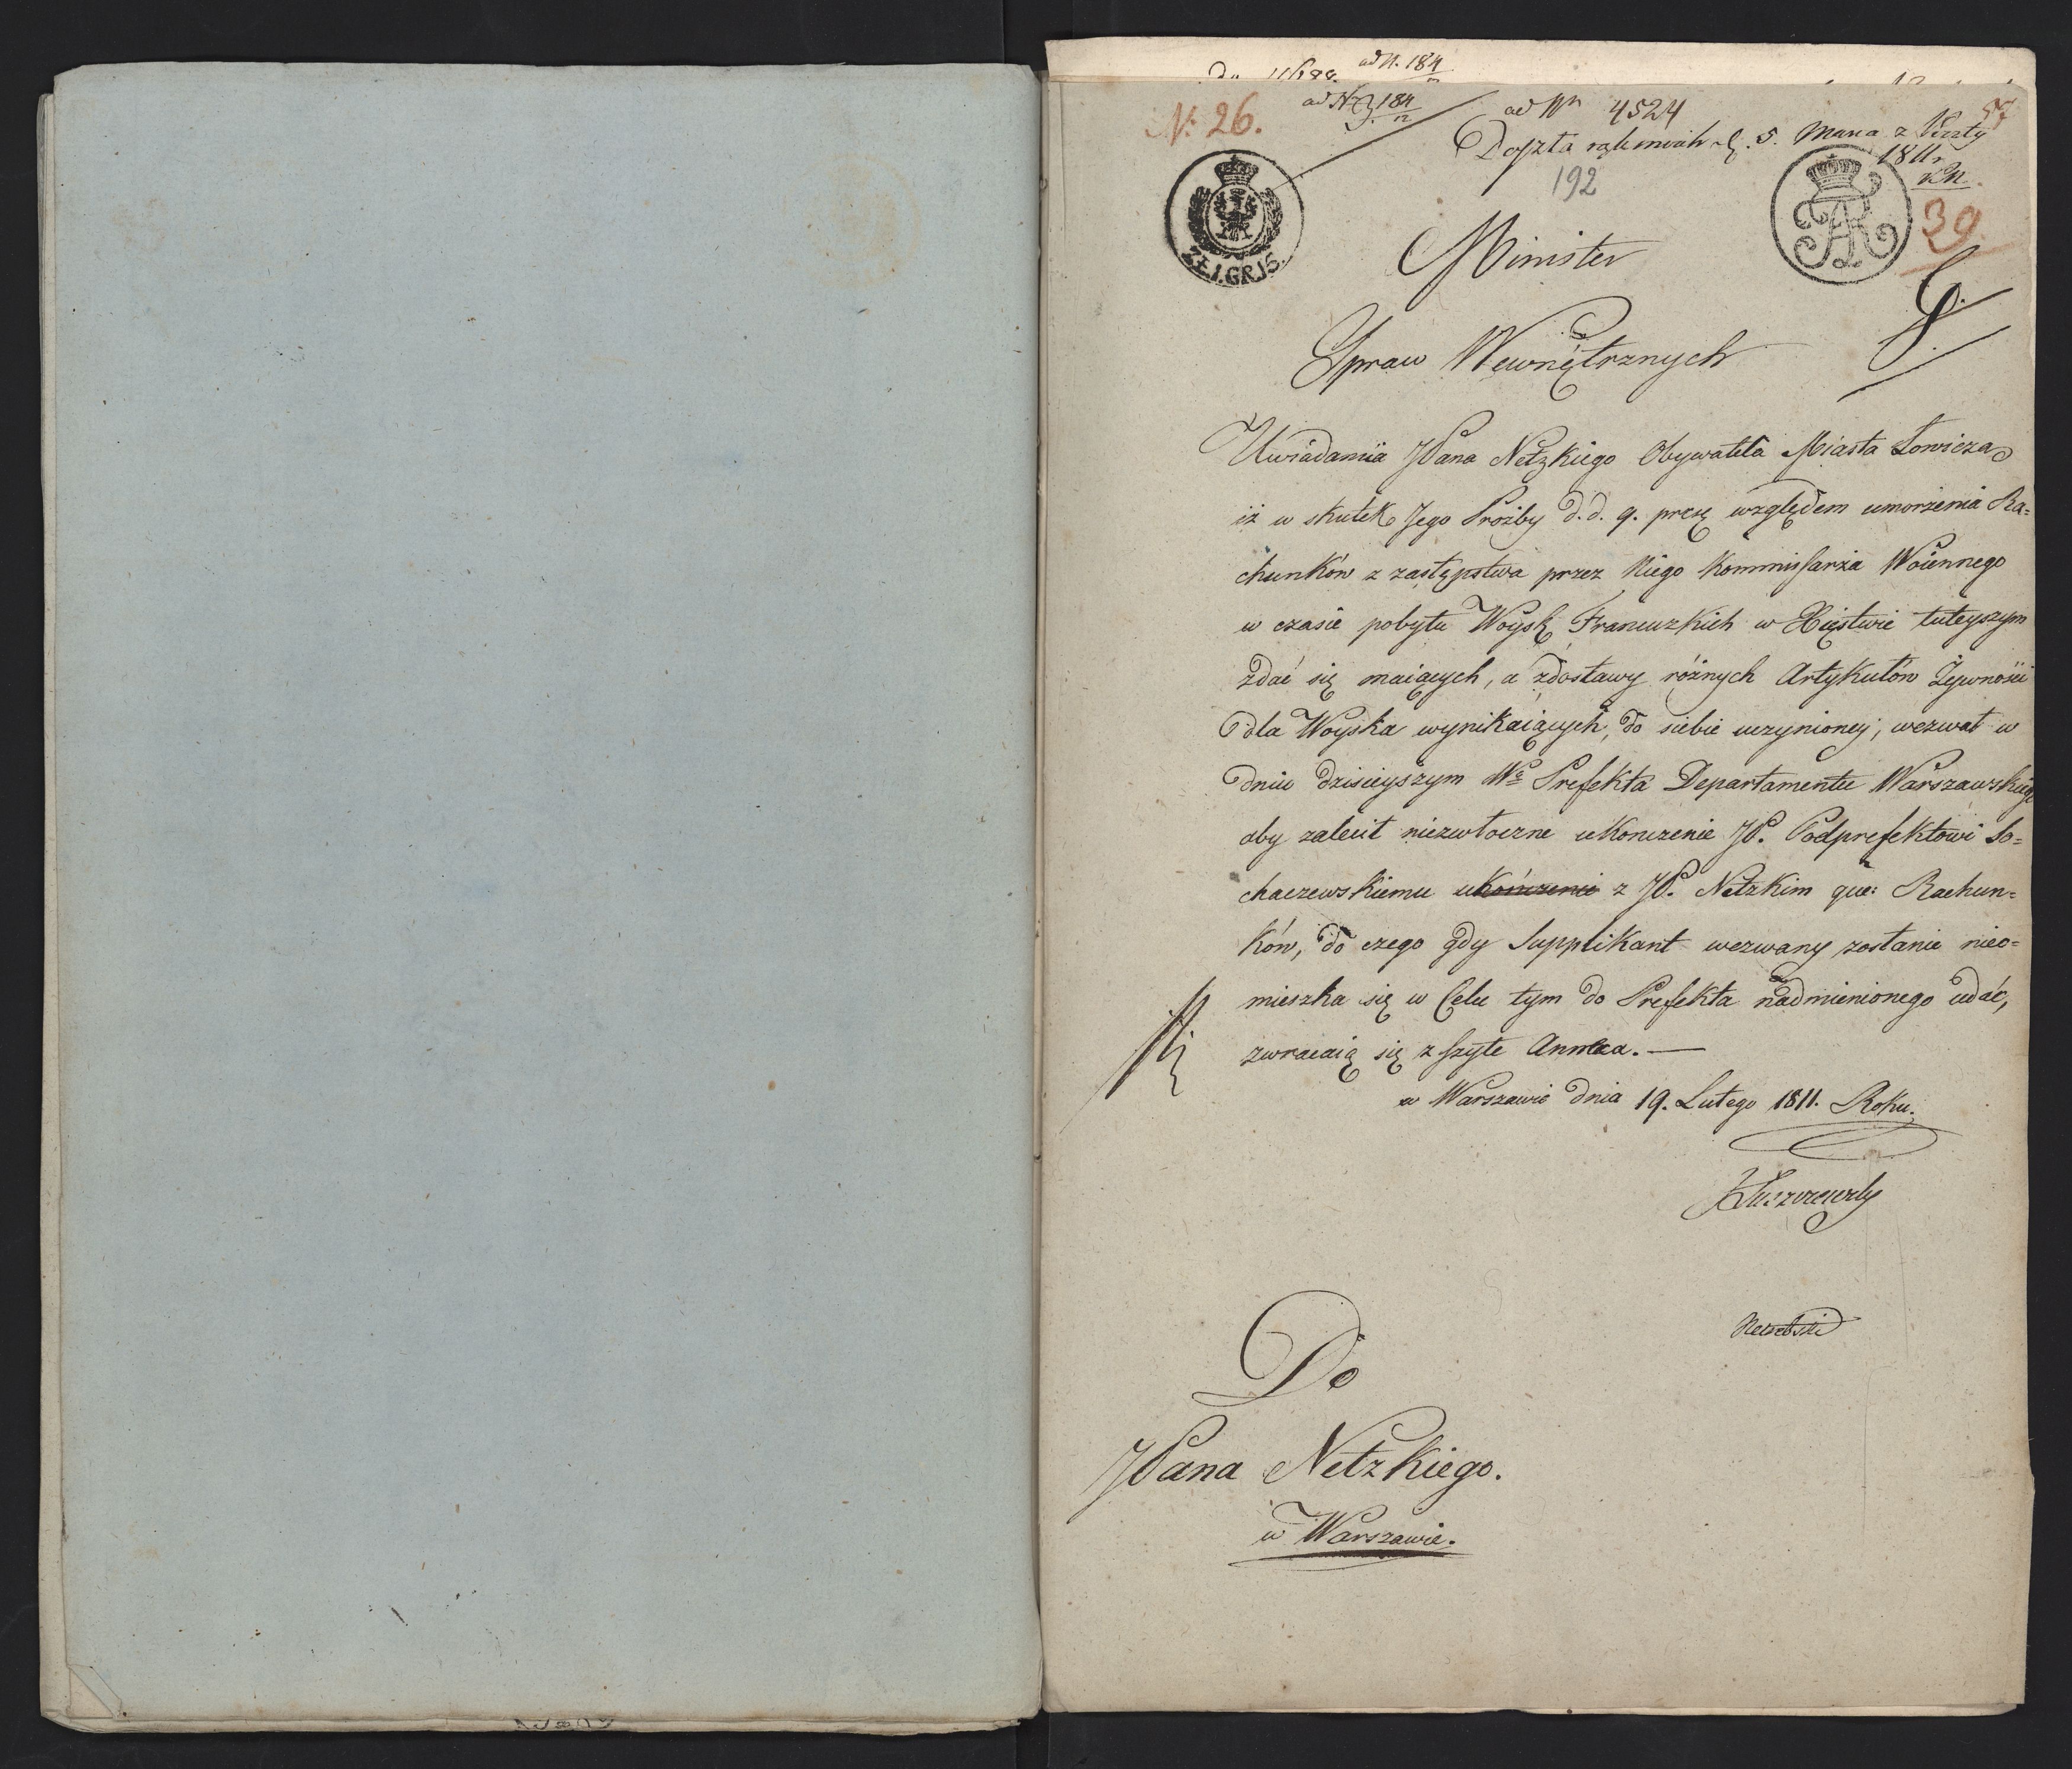 ad N. 184
N: 26.
ad N 184
ad N 4524
Doszła 5. Marca z Poczty
1811
57
192
39
ZŁ.I.GR.15.
Minister
Spraw Wewnętrznych
Uwiadamia JPana Netzkiego Obywatela Miasta Łowicza
iż w skutek Jego Prożby d. d. 9. przę względem umorzenia Ra=
chunków z zastępstwa przez Niego Kommissarza Woiennego
w czasie pobytu Woysk Francuzkich w Xięstwie tuteyszym
zdać się maiących, a z dostawy różnych Artykułów Żywności
dla Woyska wynikaiących, do siebie uczynioney, wezwał w
dniu dzisieyszym Wo Prefekta Departamentu Warszawskiego
aby zalecił niezwłoczne ukonczenie JP. Podprefektowi So=
chaczewskiemu ukończenie z JP. Netzkim que: Rachun=
ków, do czego gdy Supplikant wezwany zostanie nieo=
mieszka się w Celu tym do Prefekta nadmienionego udać,
zwracaią się z szyte Annexa. —
w Warszawie dnia 19. Lutego 1811. Roku.
Do
JPana Netzkiego.
w Warszawie.